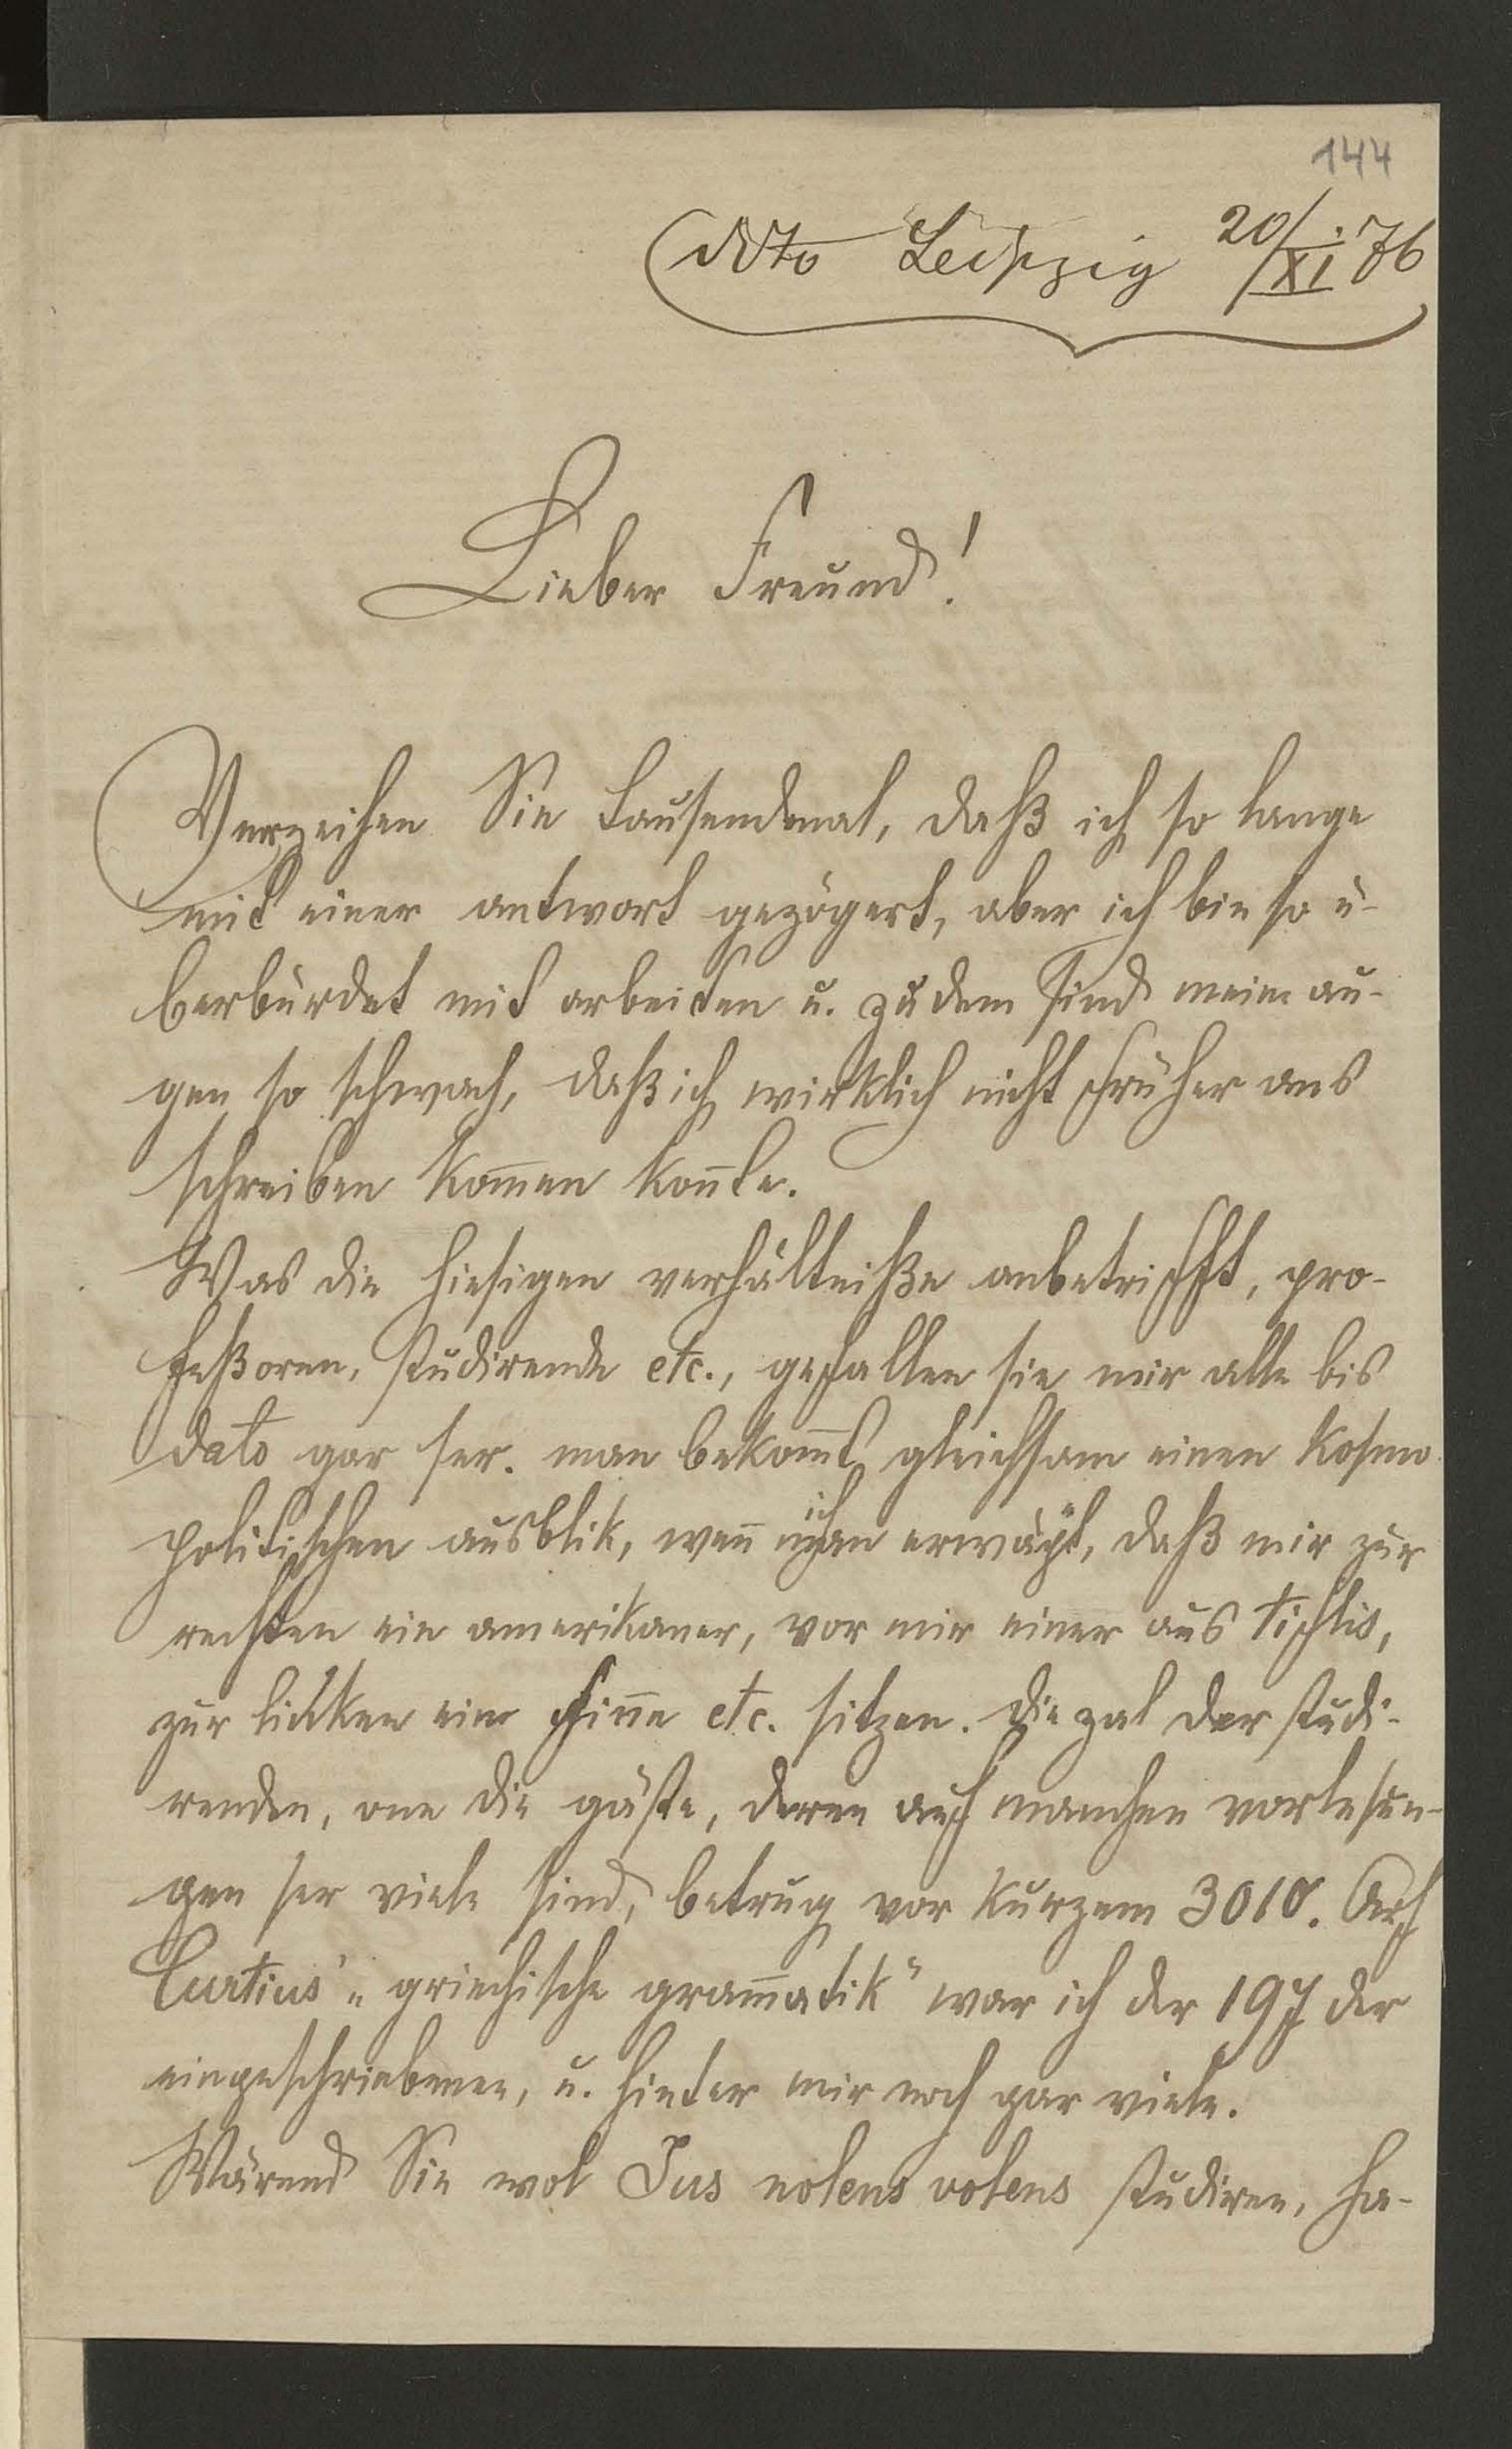 144
ddto Leipzig 20/XI. 76
Lieber Freund!
Verzeihen Sie tausendmal, daß ich so lange
mit einer antwort gezögert, aber ich bin so ü-
berbürdet mit arbeiten u. zudem sind meine au-
gen so schwach, daß ich wirklich nicht früher ans
schreiben kom̄en kon̄te.
Was die hiesigen verhältniße anbetrifft, pro-
feßoren, studirende etc., gefallen sie mir alle bis
dato gar ser. man bekom̄t gleichsam einen kosmo
politischen ausblik, wen̄ ich erwäge, daß mir zur
rechten ein amerikaner, vor mir einer aus tiflis,
zur linken ein finne etc. sitzen. die zal der studi-
renden, one die gäste, deren auf manchen vorlesun-
gen ser viele sind, betrug vor kurzem 3010. Auf
Curtius' „griechische gram̄atik" war ich der 197 der
eingeschriebenen, u. hinter mir noch gar viele.
Wärend Sie wol Jus nolens volens studiren, ha-